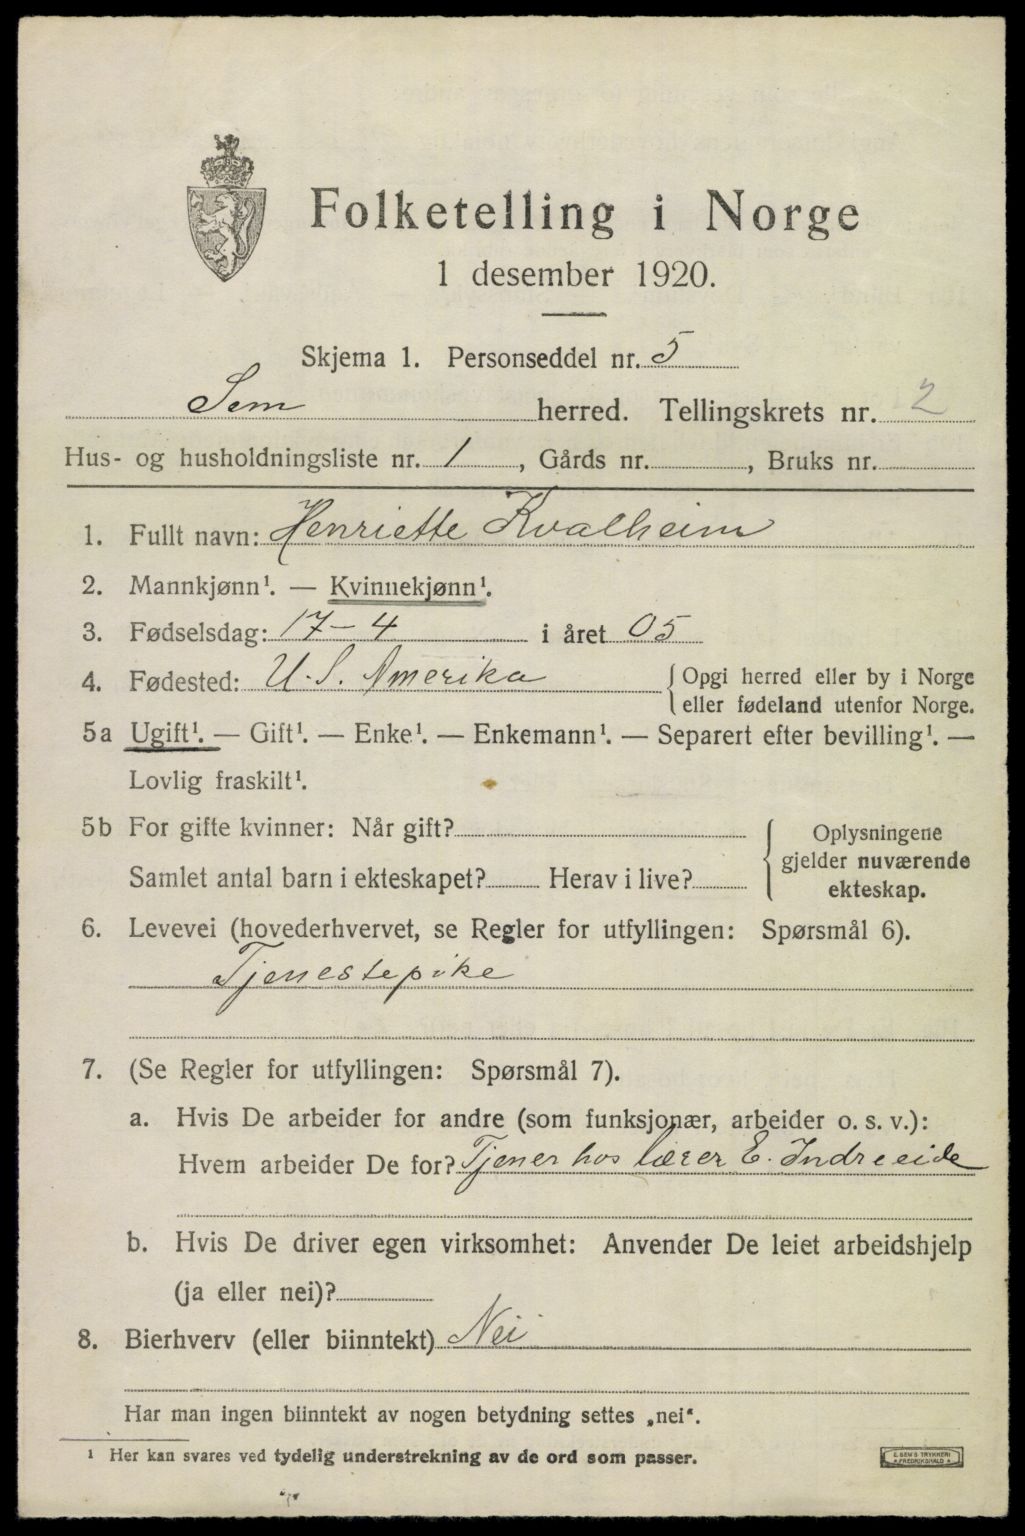 Folketelling i Norge
1 desember 1920.
Skjema 1. Personseddel nr. 5
Sem herred. Tellingskrets nr. 2
Hus- og husholdningsliste nr. 1, Gårds nr. , Bruks nr.
1. Fullt navn: Henriette Kvalheim
2. Mannkjønn¹. — Kvinnekjønn¹.
3. Fødselsdag: 17-4 i året 05
4. Fødested: U.S. Amerika { Opgi herred eller by i Norge
eller fødeland utenfor Norge.
5a Ugift¹. — Gift¹. — Enke¹. — Enkemann¹. — Separert efter bevilling¹. —
Lovlig fraskilt¹.
5b For gifte kvinner: Når gift?
Samlet antal barn i ekteskapet? Herav i live?
Oplysningene
gjelder nuværende
ekteskap.
6. Levevei (hovederhvervet, se Regler for utfyllingen: Spørsmål 6).
Tjenestepike
7. (Se Regler for utfyllingen: Spørsmål 7).
a. Hvis De arbeider for andre (som funksjonær, arbeider o. s. v.):
Hvem arbeider De for? Tjener hos lærer E. Indreeide
b. Hvis De driver egen virksomhet: Anvender De leiet arbeidshjelp
(ja eller nei)?
8. Bierhverv (eller biinntekt) Nei
Har man ingen biinntekt av nogen betydning settes „nei“.
¹ Her kan svares ved tydelig understrekning av de ord som passer.
E. SEM'S TRYKKERI
FREDRIKSHALD